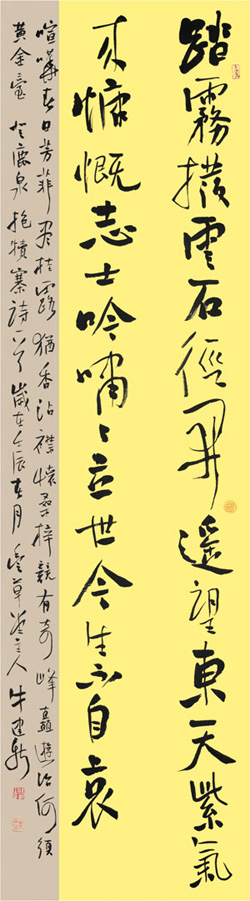 踏霧撥雲石徑開遙望東天紫氣
來慷慨志士吟嘯々立世今生不自哀
喧嘩春日芳菲盡桂露猶香沾襟懷桑梓競有奇峰矗遊冶何須
黃金臺 登鹿泉抱犢寨詩一首 歲在壬辰春月 草堂主人 牛建新